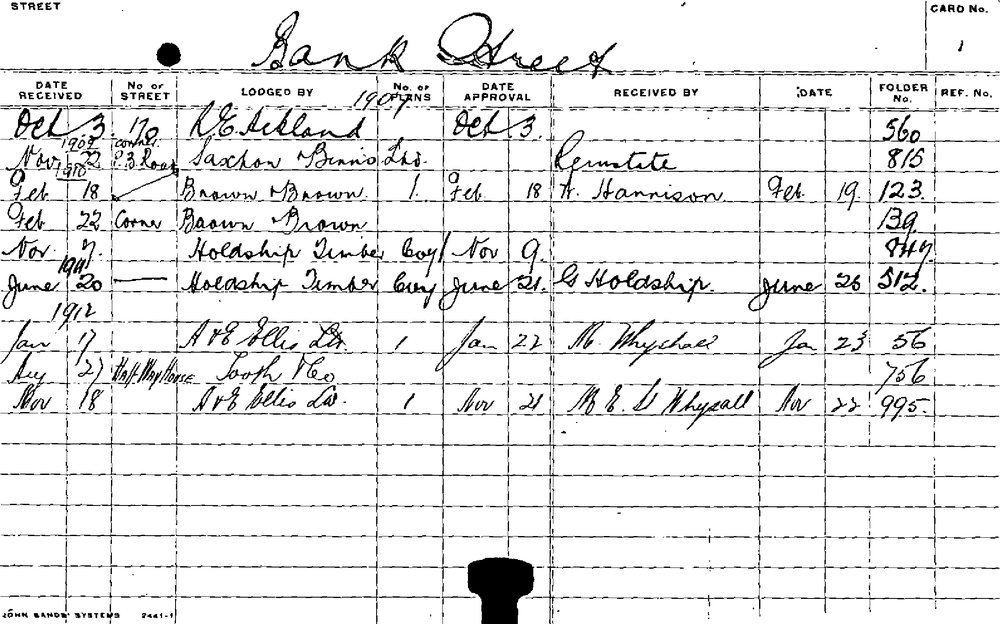 STREET Bank Street CARD No. 1
DATE RECEIVED No OF STREET LODGED BY No. OF PLANS DATE APPROVAL RECEIVED BY DATE FOLDER No. REF. No.
1907
Oct 3 170 R.E. Ackland Oct 3. 560
1909 corner
Nov 22 P.B. Road Saxton Binns Ltd. 815
1910
Feb 18 Brown Brown. 1. Feb 18 A. Harrison Feb. 19. 123.
Feb 22 Corner Baown Brown 139.
Nov 7. Holdship Timber Coy 1 Nov 9. 847
1911
June 20 Holdship Timber Coy June 21. G Holdship. June 26 512.
1912
Jan 17 A & E Ellis Ltd. 1 Jan 22 Jan 23 56
Aug 27 Half Way House Tooth & Co 756
Nov 18 A & E Ellis Ltd. 1 Nov 21 Whysall Nov 22 995.
JOHN SANDS' SYSTEMS 2441-1